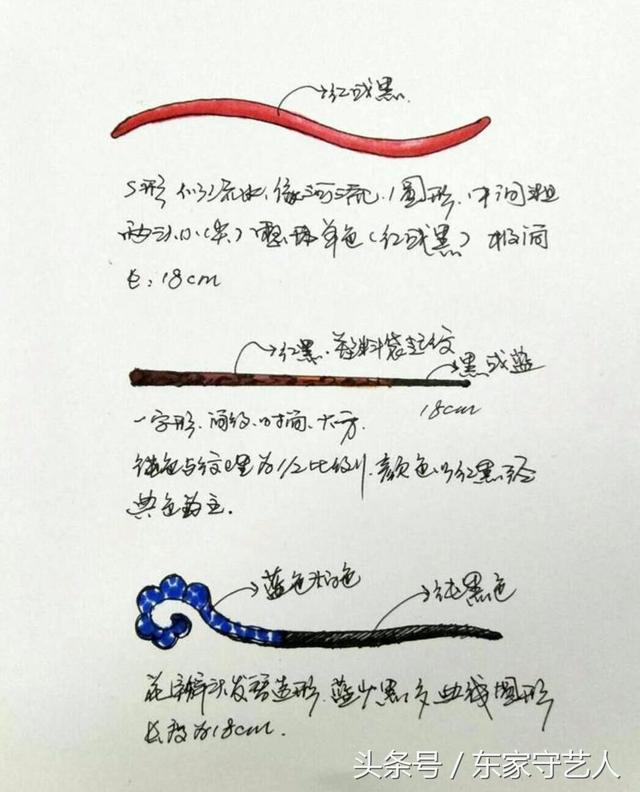 红或黑
S形 似流水,像河流,圆形,中间粗
两头小(尖)整体单色(红或黑)极简
长:18cm
红黑,塑料袋起纹
黑或蓝
18cm
一字形,简约,时简,大方.
纯色与纹理为1/2比例,颜色以红黑经
典色为主.
蓝色
纯黑色
花瓣头发簪造形,蓝少黑多曲线圆形
长度为18cm.
头条号 / 东家守艺人